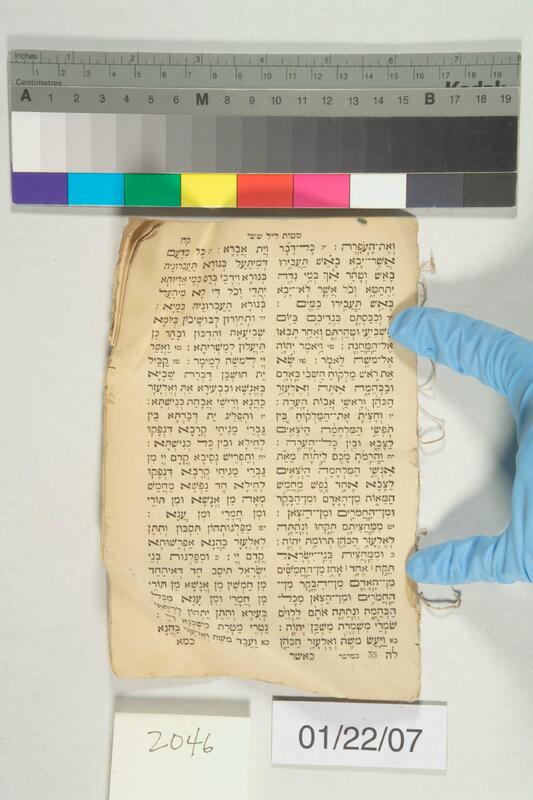 inches 1 2 3 4 5 6 7 8
Centimetres 1 2 3 4 5 6 7 8 9 10 11 12 13 14 15 16 17 18 19
Kodak
A 1 2 3 4 5 6 M 8 9 10 11 12 13 14 15 B 17 18 19
מטות ליל ששי
קלו
ואת־העפרת: יג כל־דבר
אשר־יבא באש תעבירו
באש וטהר אך במי נדה
יתחטא וכל אשר לא־יבא
באש תעבירו במים:
יד וכבסתם בגדיכם ביום
השביעי וטהרתם ואחר תבאו
אל־המחנה: טו ויאמר יהוה
אל־משה לאמר: טז שא
את ראש מלקוח השבי באדם
ובבהמה אתה ואלעזר
הכהן וראשי אבות העדה:
יז וחצית את־המלקוח בין
תפשי המלחמה היצאים
לצבא ובין כל־העדה:
יח והרמת מכס ליהוה מאת
אנשי המלחמה היצאים
לצבא אחד נפש מחמש
המאות מן־האדם ומן־הבקר
ומן־החמרים ומן־הצאן:
יט ממחציתם תקחו ונתתה
לאלעזר הכהן תרומת יהוה:
כ וממחצת בני־ישראל
תקח אחד אחז מן־החמשים
מן־האדם מן־הבקר מן־
החמרים ומן־הצאן מכל־
הבהמה ונתתה אתם ללוים
שמרי משמרת משכן יהוה:
כא ויעש משה ואלעזר הכהן
כאשר
וית אברא: יג כל מדעם
דמיתעל בנורא תעברוניה
בנורא וידכי ברם במי אדיותא
יתדי וכל די לא מיתעל
בנורא תעברוניה במיא:
יד ותחורון לבושיכון ביומא
שביעאה ותדכון ובתר כן
תיעלון למשריתא: טו ואמר
יי למשה למימר: טז קביל
ית חושבן דברת שביא
באנשא ובבעירא את ואלעזר
כהנא ורישי אבהת כנישתא:
יז ותפליג ית דברתא בין
גברי מגיחי קרבא דנפקו
לחילא ובין כל כנישתא:
יח ותפריש נסיבא קדם יי מן
גברי מגיחי קרבא דנפקו
לחילא חד נפשא מחמש
מאה מן אנשא ומן תורי
ומן חמרי ומן ענא:
יט מפלגותהון תסבון ותתן
לאלעזר כהנא אפרשותא
קדם יי: כ ומפלגות בני
ישראל תיסב חד דאיתחד
מן חמשין מן אנשא מן תורי
מן חמרי ומן ענא מכל
בעירא ותתן יתהון לליואי
נטרי מטרת משכנא דיי:
כא ועבד משה ואלעזר כהנא
כמא
לה 35 במדבר
2046
01/22/07